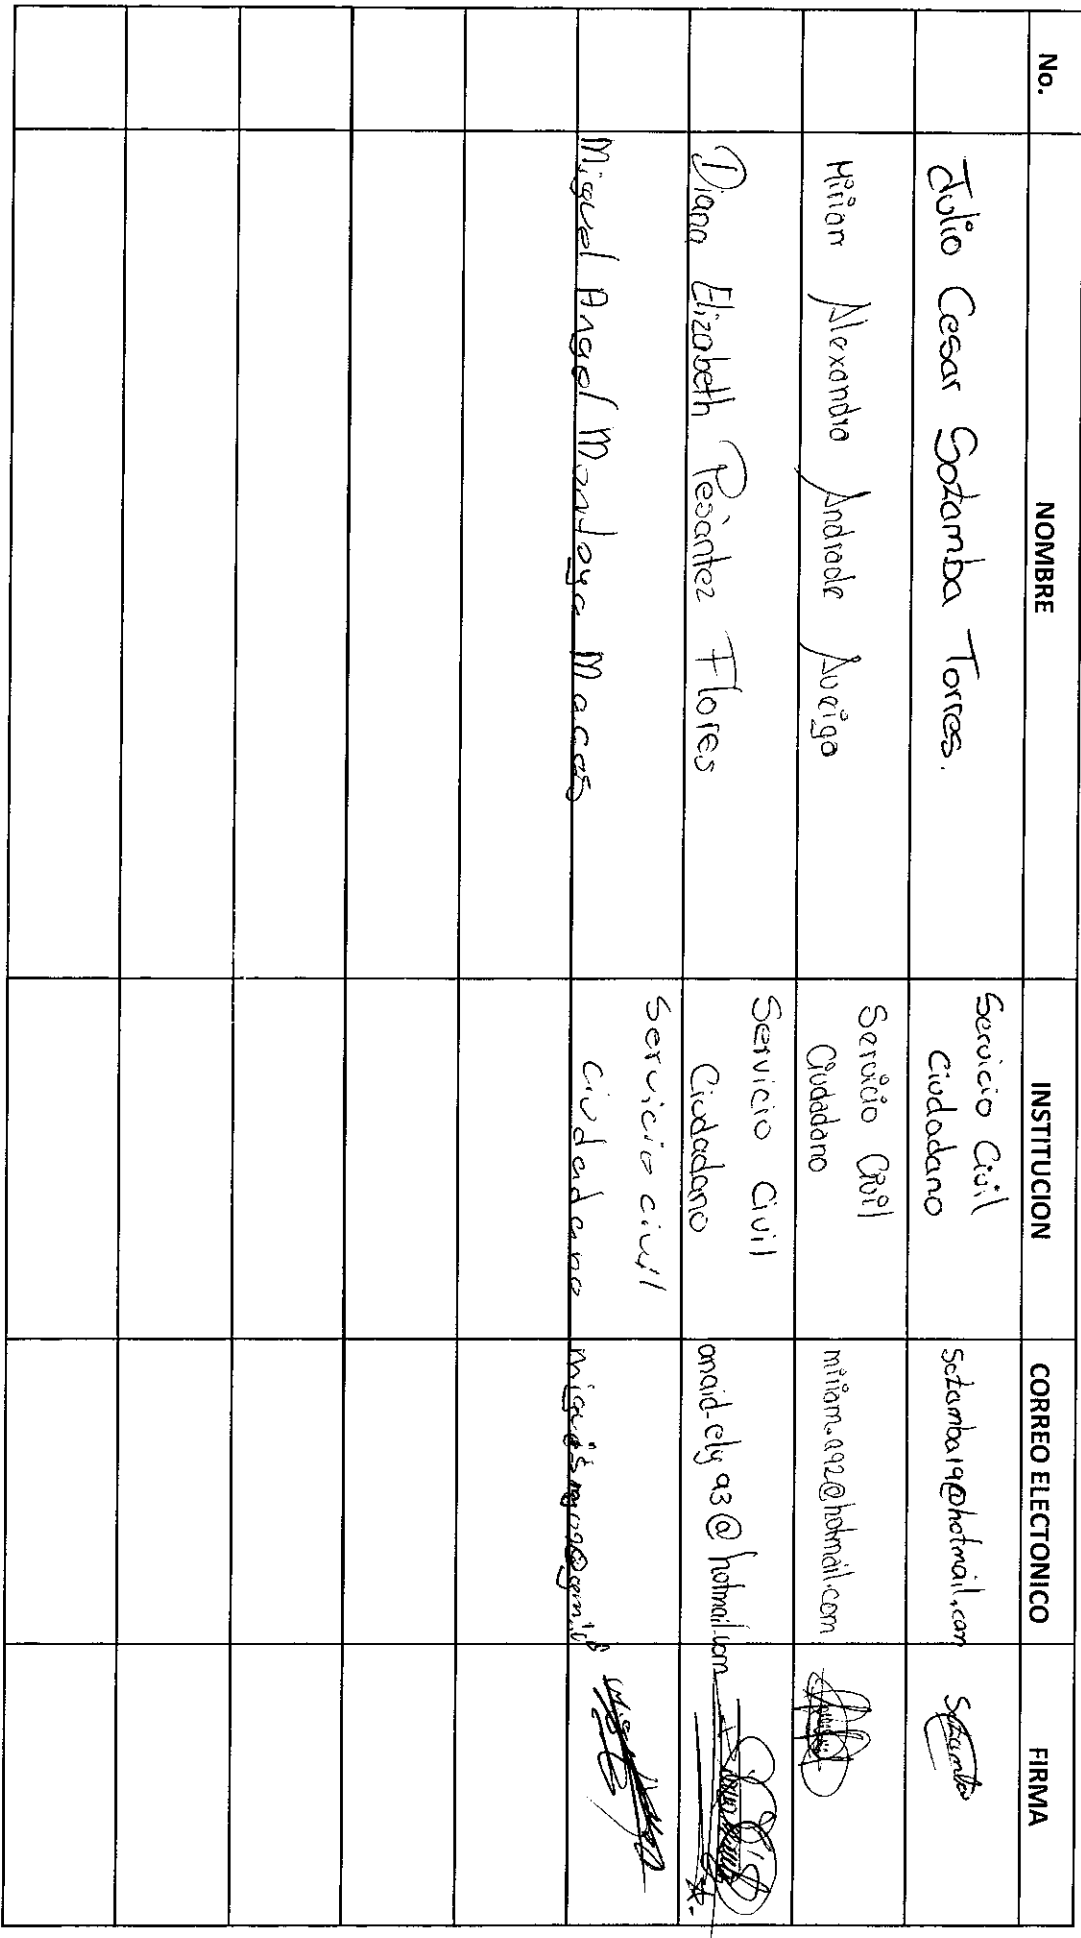 No. NOMBRE INSTITUCION CORREO ELECTONICO FIRMA
Julio Cesar Sotamba Torres. Servicio Civil Ciudadano sotamba19@hotmail.com Sotamba
Miriam Alexandra Andrade Avecigo Servicio Civil Ciudadano miriam.a92@hotmail.com
Diana Elizabeth Pesántez Flores Servicio Civil Ciudadano anaid-ely93@hotmail.com
Miguel Angel Montoya Macas Servicio civil ciudadano